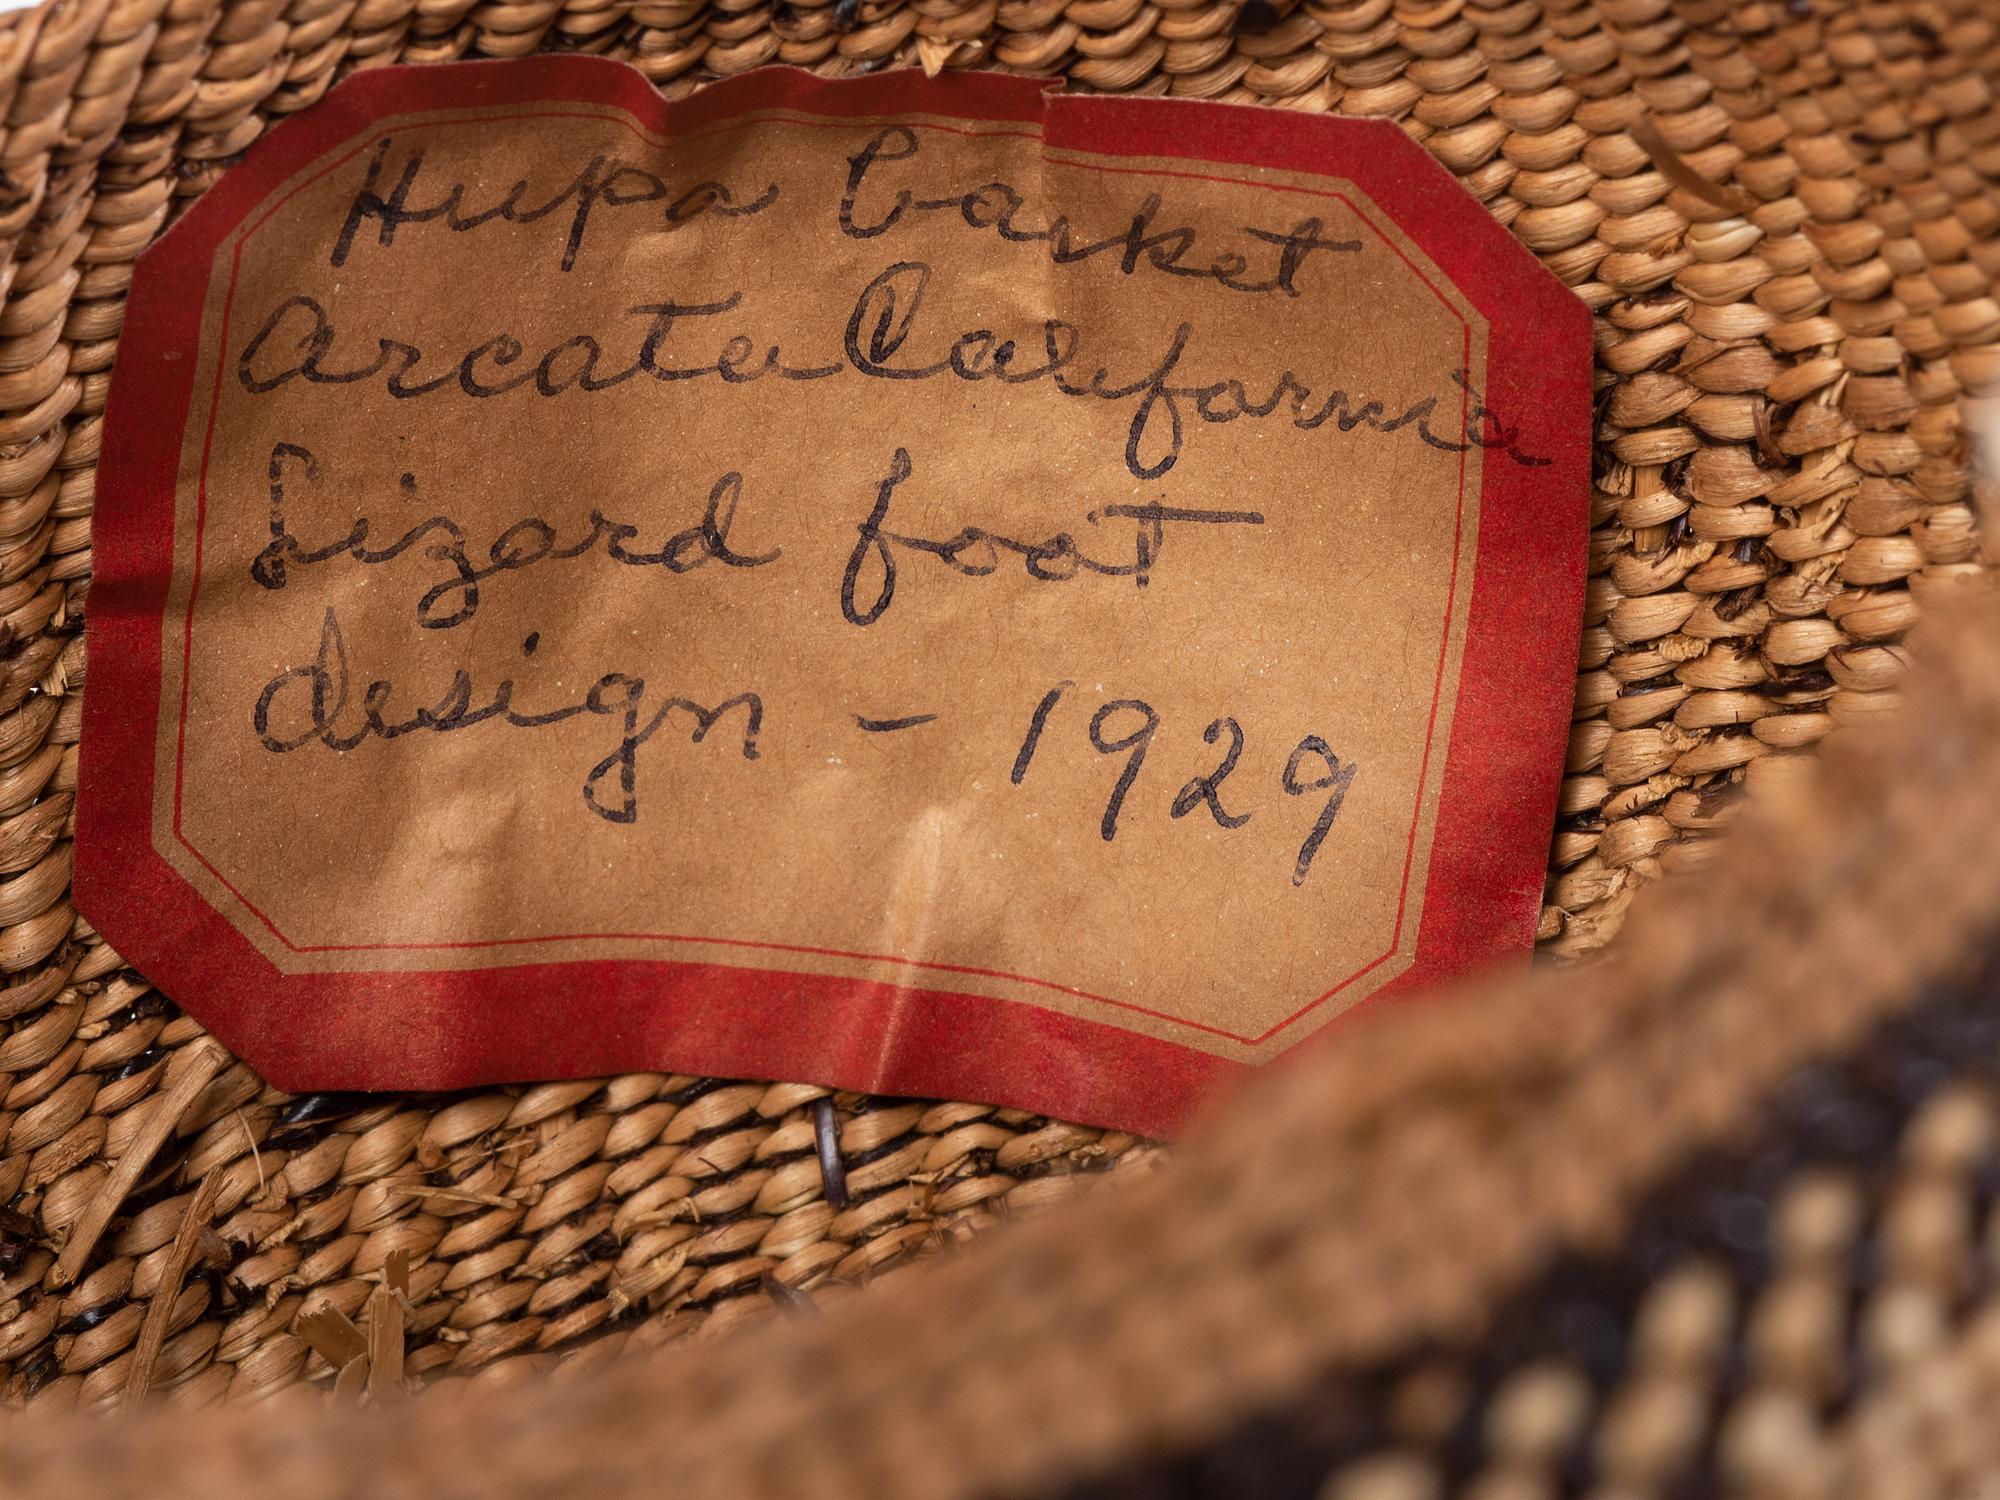 Hupa basket
Arcata California
Lizard foot
design - 1929